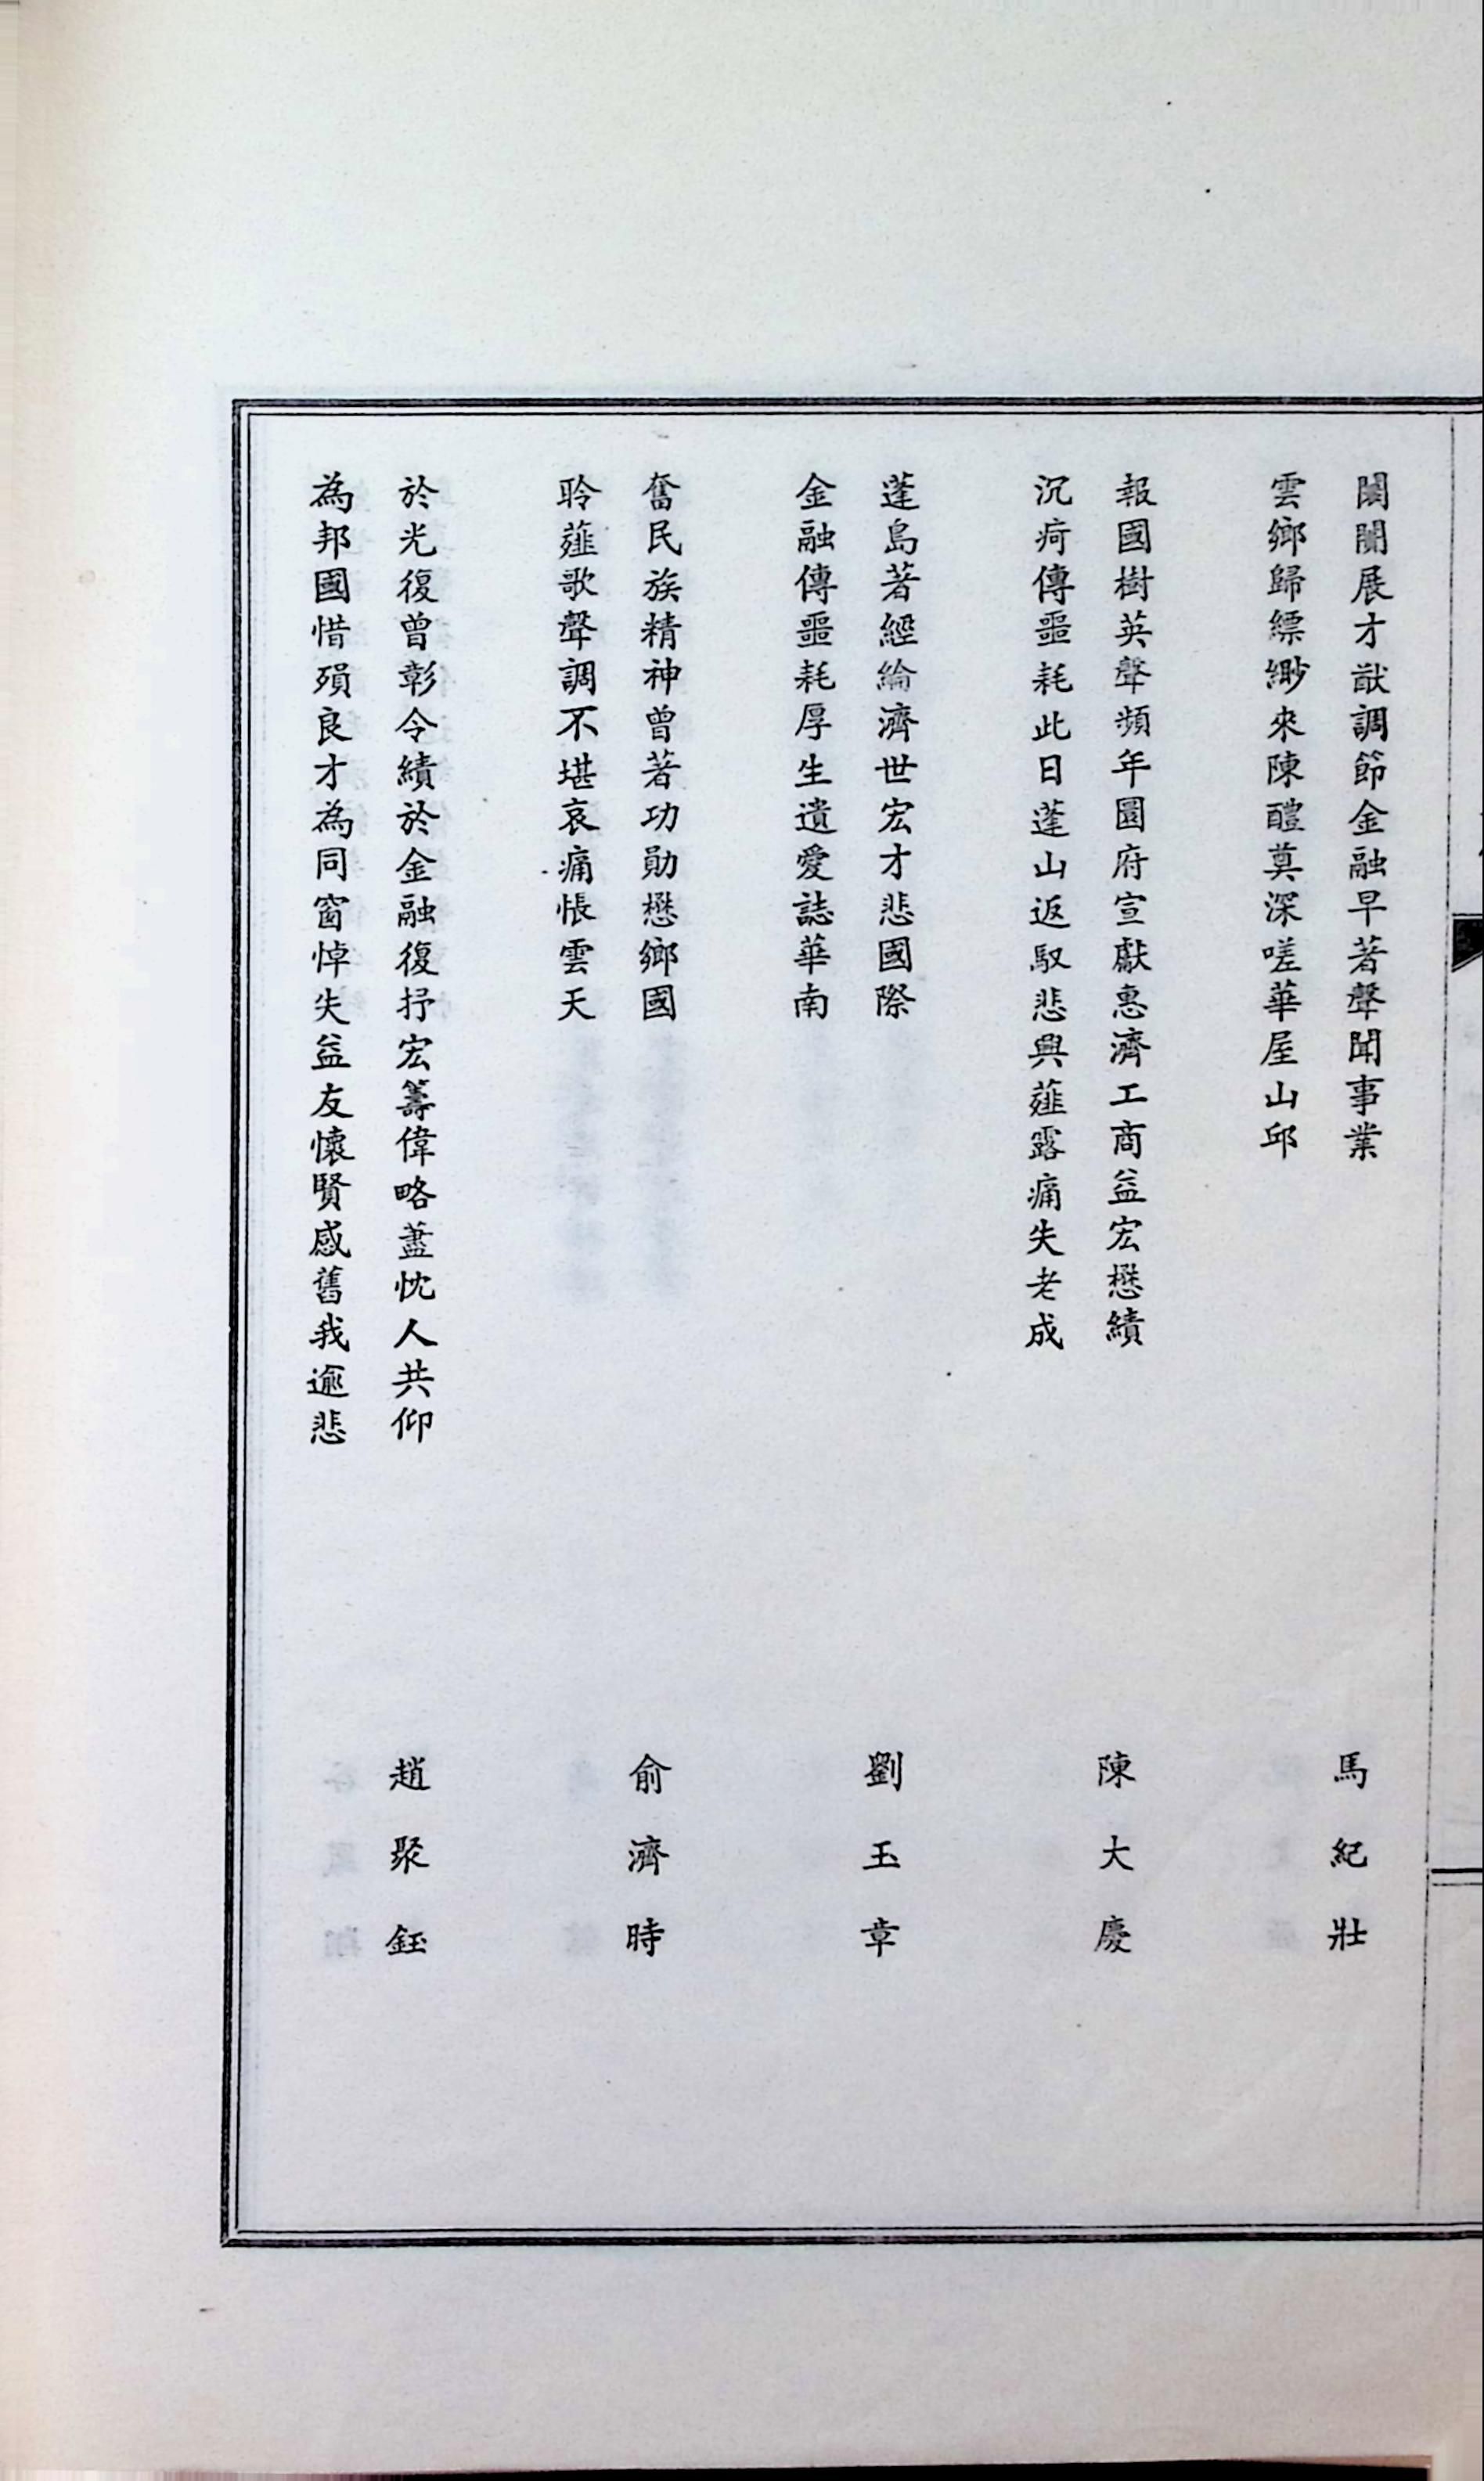 闤闠展才猷調節金融早著聲聞事業
馬紀壯
雲鄉歸縹緲來陳醴奠深嗟華屋山邱
報國樹英聲頻年圜府宣猷惠濟工商益宏懋績
陳大慶
沉疴傳噩耗此日蓬山返馭悲興薤露痛失老成
蓬島著經綸濟世宏才悲國際
劉玉章
金融傳噩耗厚生遺愛誌華南
奮民族精神曾著功勛懋鄉國
俞濟時
聆薤歌聲調不堪哀痛悵雲天
於光復曾彰令績於金融復抒宏籌偉略藎忱人共仰
趙聚鈺
為邦國惜殞良才為同窗悼失益友懷賢感舊我逾悲